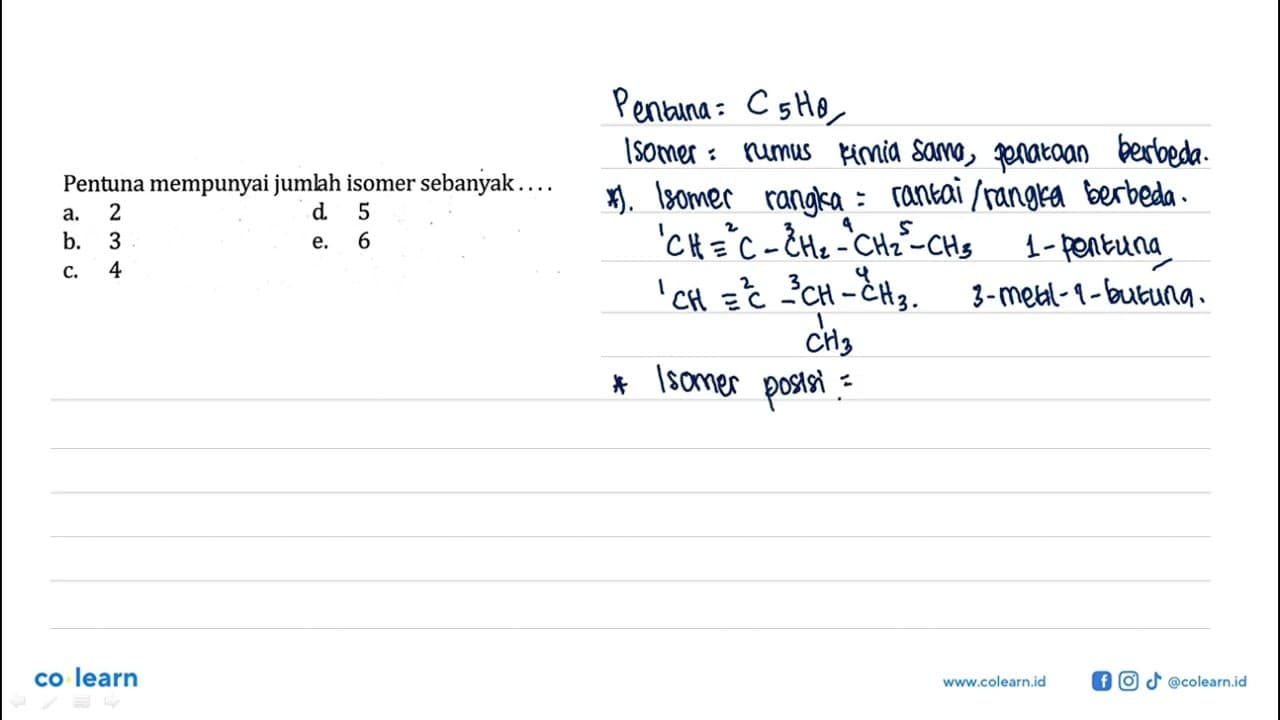 Pentuna mempunyai jumlah isomer sebanyak ....
a. 2
b. 3
c. 4
d. 5
e. 6
Pentuna = C5H8
Isomer = rumus kimia sama, penataan berbeda.
*). Isomer rangka = rantai/rangka berbeda.
1CH ≡ 2C - 3CH2 - 4CH2 - 5CH3 1-pentuna
1CH ≡ 2C - 3CH - 4CH3. 3-metil-1-butuna.
|
CH3
* Isomer posisi =
co learn
www.colearn.id
@colearn.id